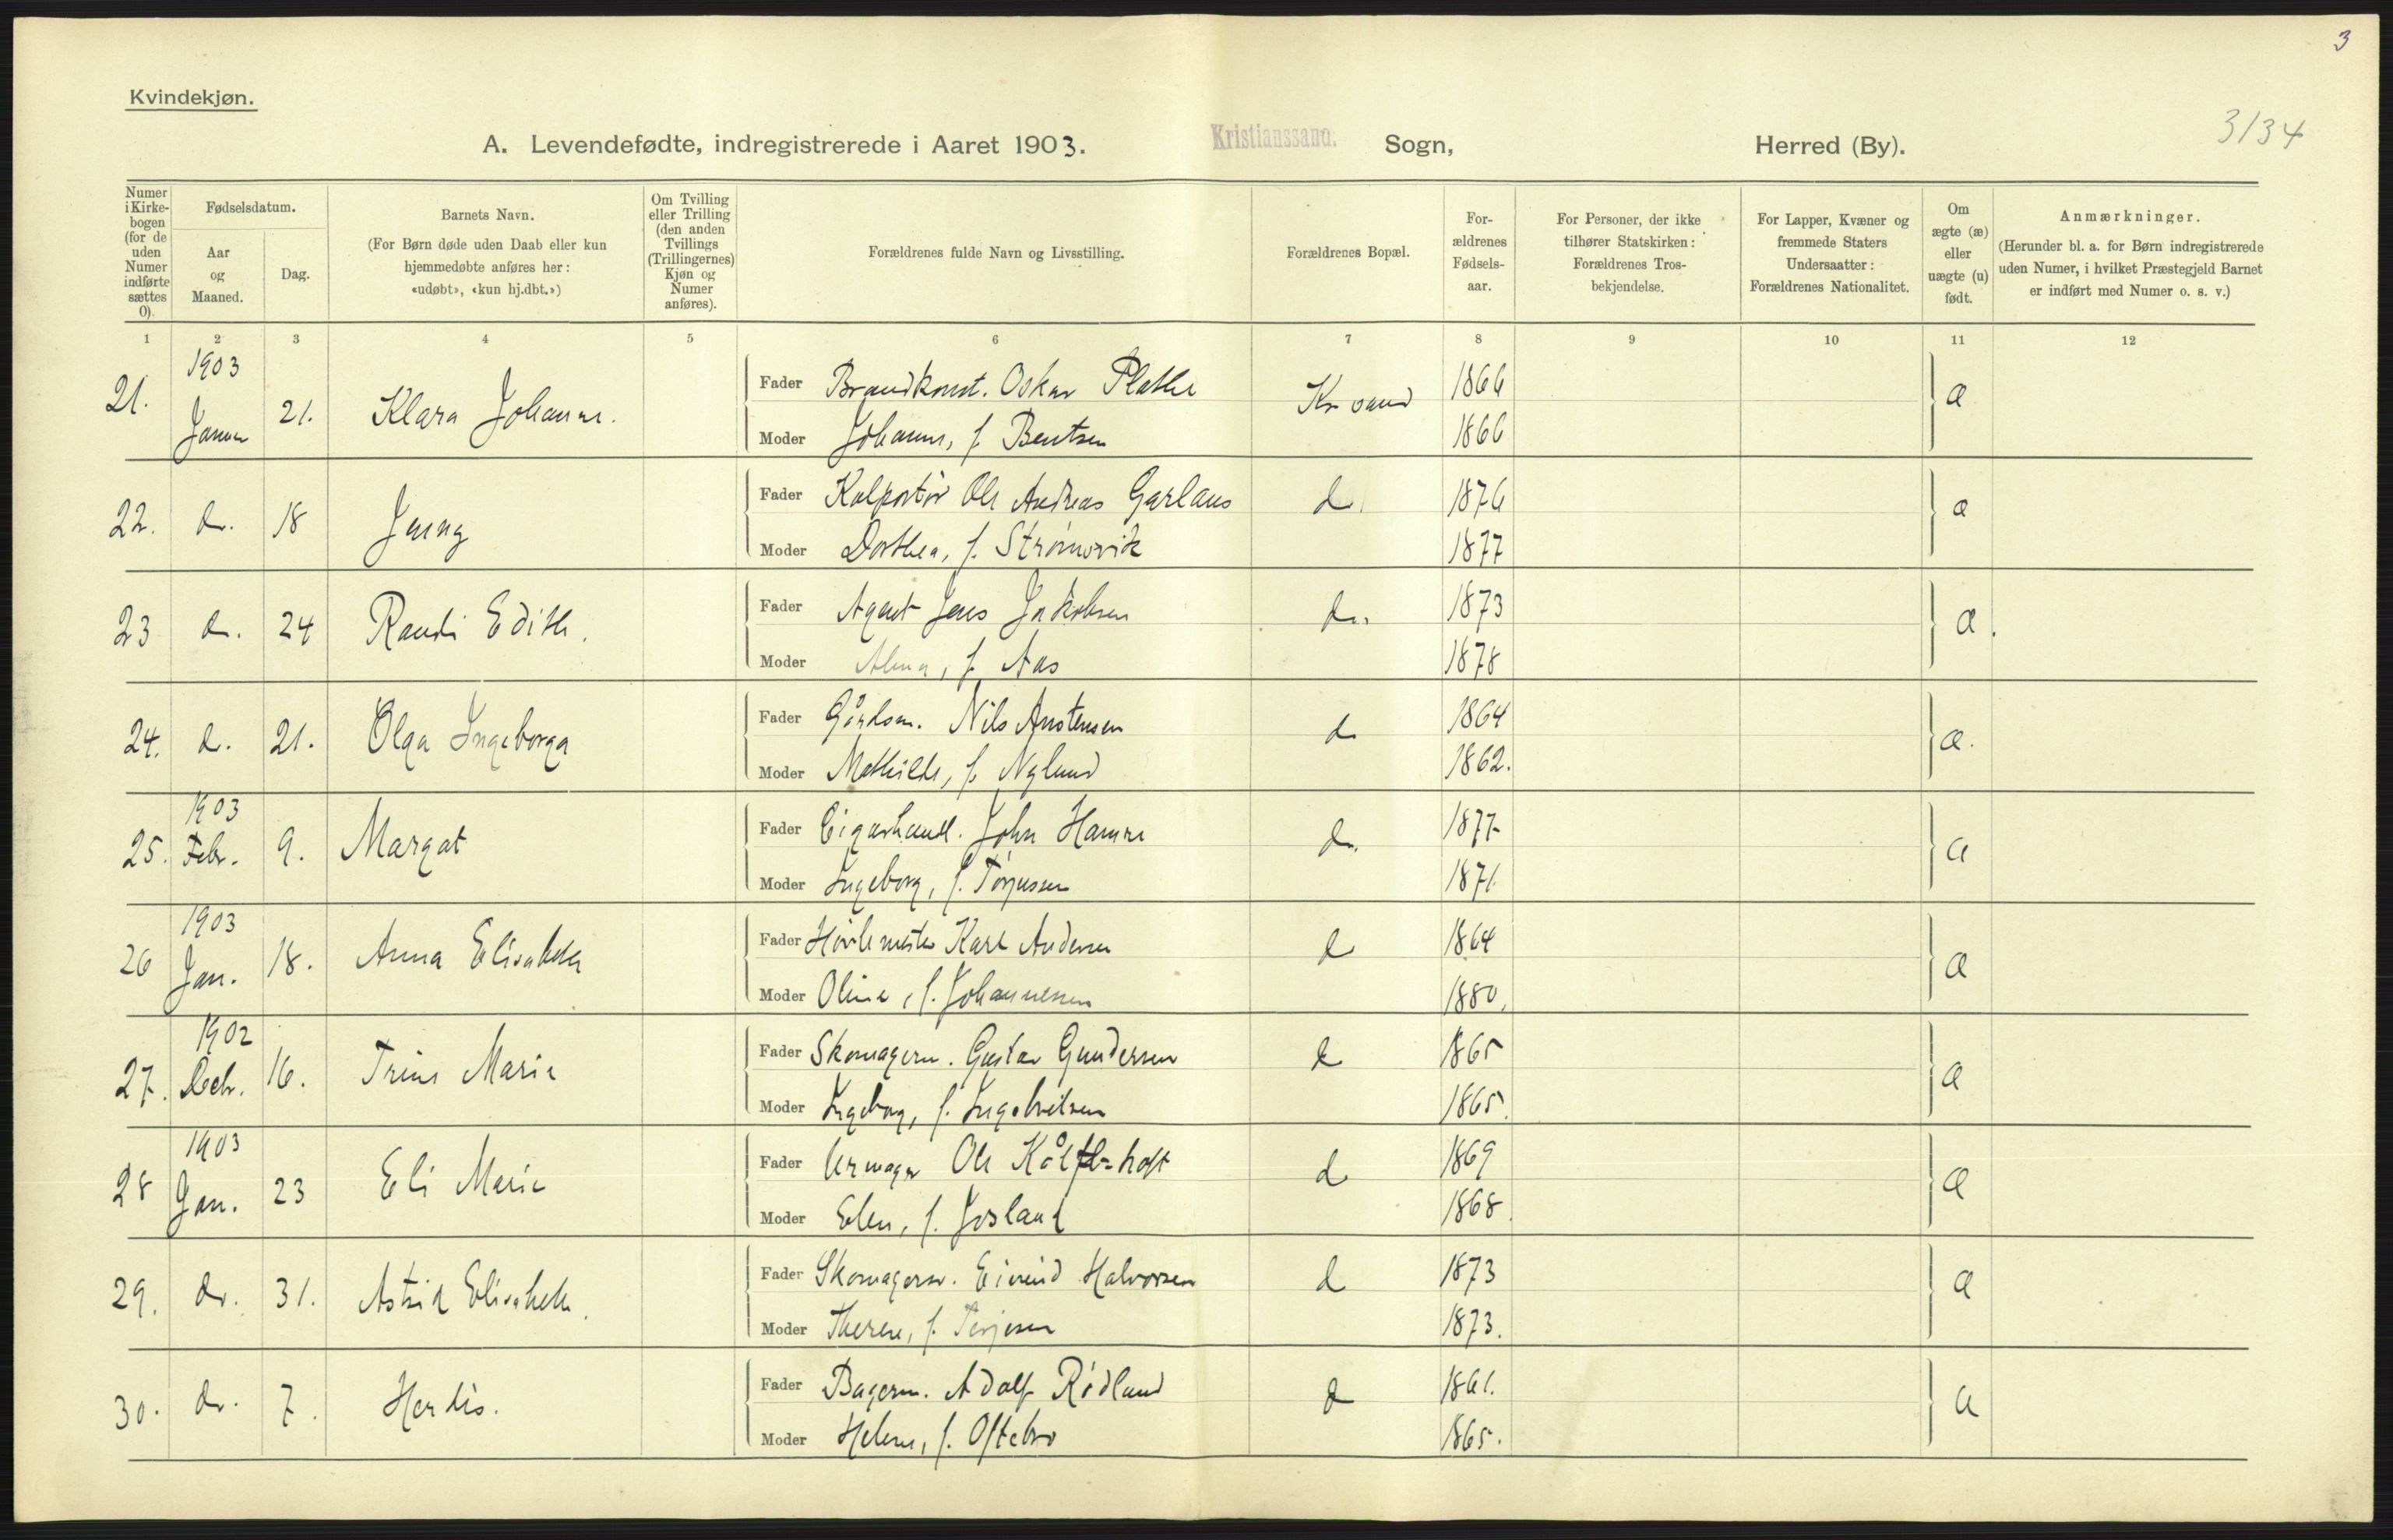 3
Kvindekjøn.
3134
A. Levendefødte, indregistrerede i Aaret 1903. Kristianssand. Sogn, Herred (By).
Numer i Kirke- bogen (for de uden Numer indførte sættes 0).
Fødselsdatum.
Aar og Maaned.
Dag.
Barnets Navn.
(For Børn døde uden Daab eller kun
hjemmedøbte anføres her:
«udøbt», «kun hj.dbt.»)
Om Tvilling eller Trilling (den anden Tvillings (Trillingernes) Kjøn og Numer anføres).
Forældrenes fulde Navn og Livsstilling.
Forældrenes Bopæl.
For- ældrenes Fødsels- aar.
For Personer, der ikke
tilhører Statskirken:
Forældrenes Tros-
bekjendelse.
For Lapper, Kvæner og
fremmede Staters
Undersaatter:
Forældrenes Nationalitet.
Om ægte (æ) eller uægte (u) født.
Anmærkninger.
(Herunder bl. a. for Børn indregistrerede
uden Numer, i hvilket Præstegjeld Barnet
er indført med Numer o. s. v.)
1 2 3 4 5 6 7 8 9 10 11 12
1903
21. Januar 21. Klara Johanne. Fader Brandkonst. Oskar Plathe Kr sand 1866 æ
Moder Johanne, f. Bentsen 1866
22. do. 18 Jenny Fader Kolportør Ole Andreas Garlaus d. 1876 æ
Moder Dorthea, f. Strømsvik 1877
23 do. 24 Randi Edith. Fader Agent Jens Jakobsen do. 1873 æ.
Moder Alma, f. Aas 1878
24. do. 21. Olga Ingeborga Fader Nils Anstensen do 1864 æ.
Moder Mathilde, f. Nylund 1862.
1903
25. Febr. 9. Margot Fader Cigarhandl. John Hamre do. 1877 æ
Moder Ingeborg, f. Torjussen 1871.
1903
26 Jan. 18. Anna Elisabeth Fader Høvlemester Karl Andersen d 1864 æ
Moder Oline, f. Johannesen 1880.
1902
27. Decbr. 16. Trine Marie Fader Skomagerm. Gustav Gundersen d 1865 æ
Moder Ingeborg, f. Ingebretsen 1865.
1903
28 Jan. 23 Eli Marie Fader Urmager Ole d 1869 æ
Moder Elen, f. Josland 1868.
29. do. 31. Astrid Elisabeth. Fader Skomagersv. Eivind Halvorsen d 1873 æ
Moder Therese, f. Terjesen 1873.
30. do. 7. Herdis. Fader Bagerm. Adolf Rødland d 1861. æ
Moder Helene, f. Oftebro 1865.